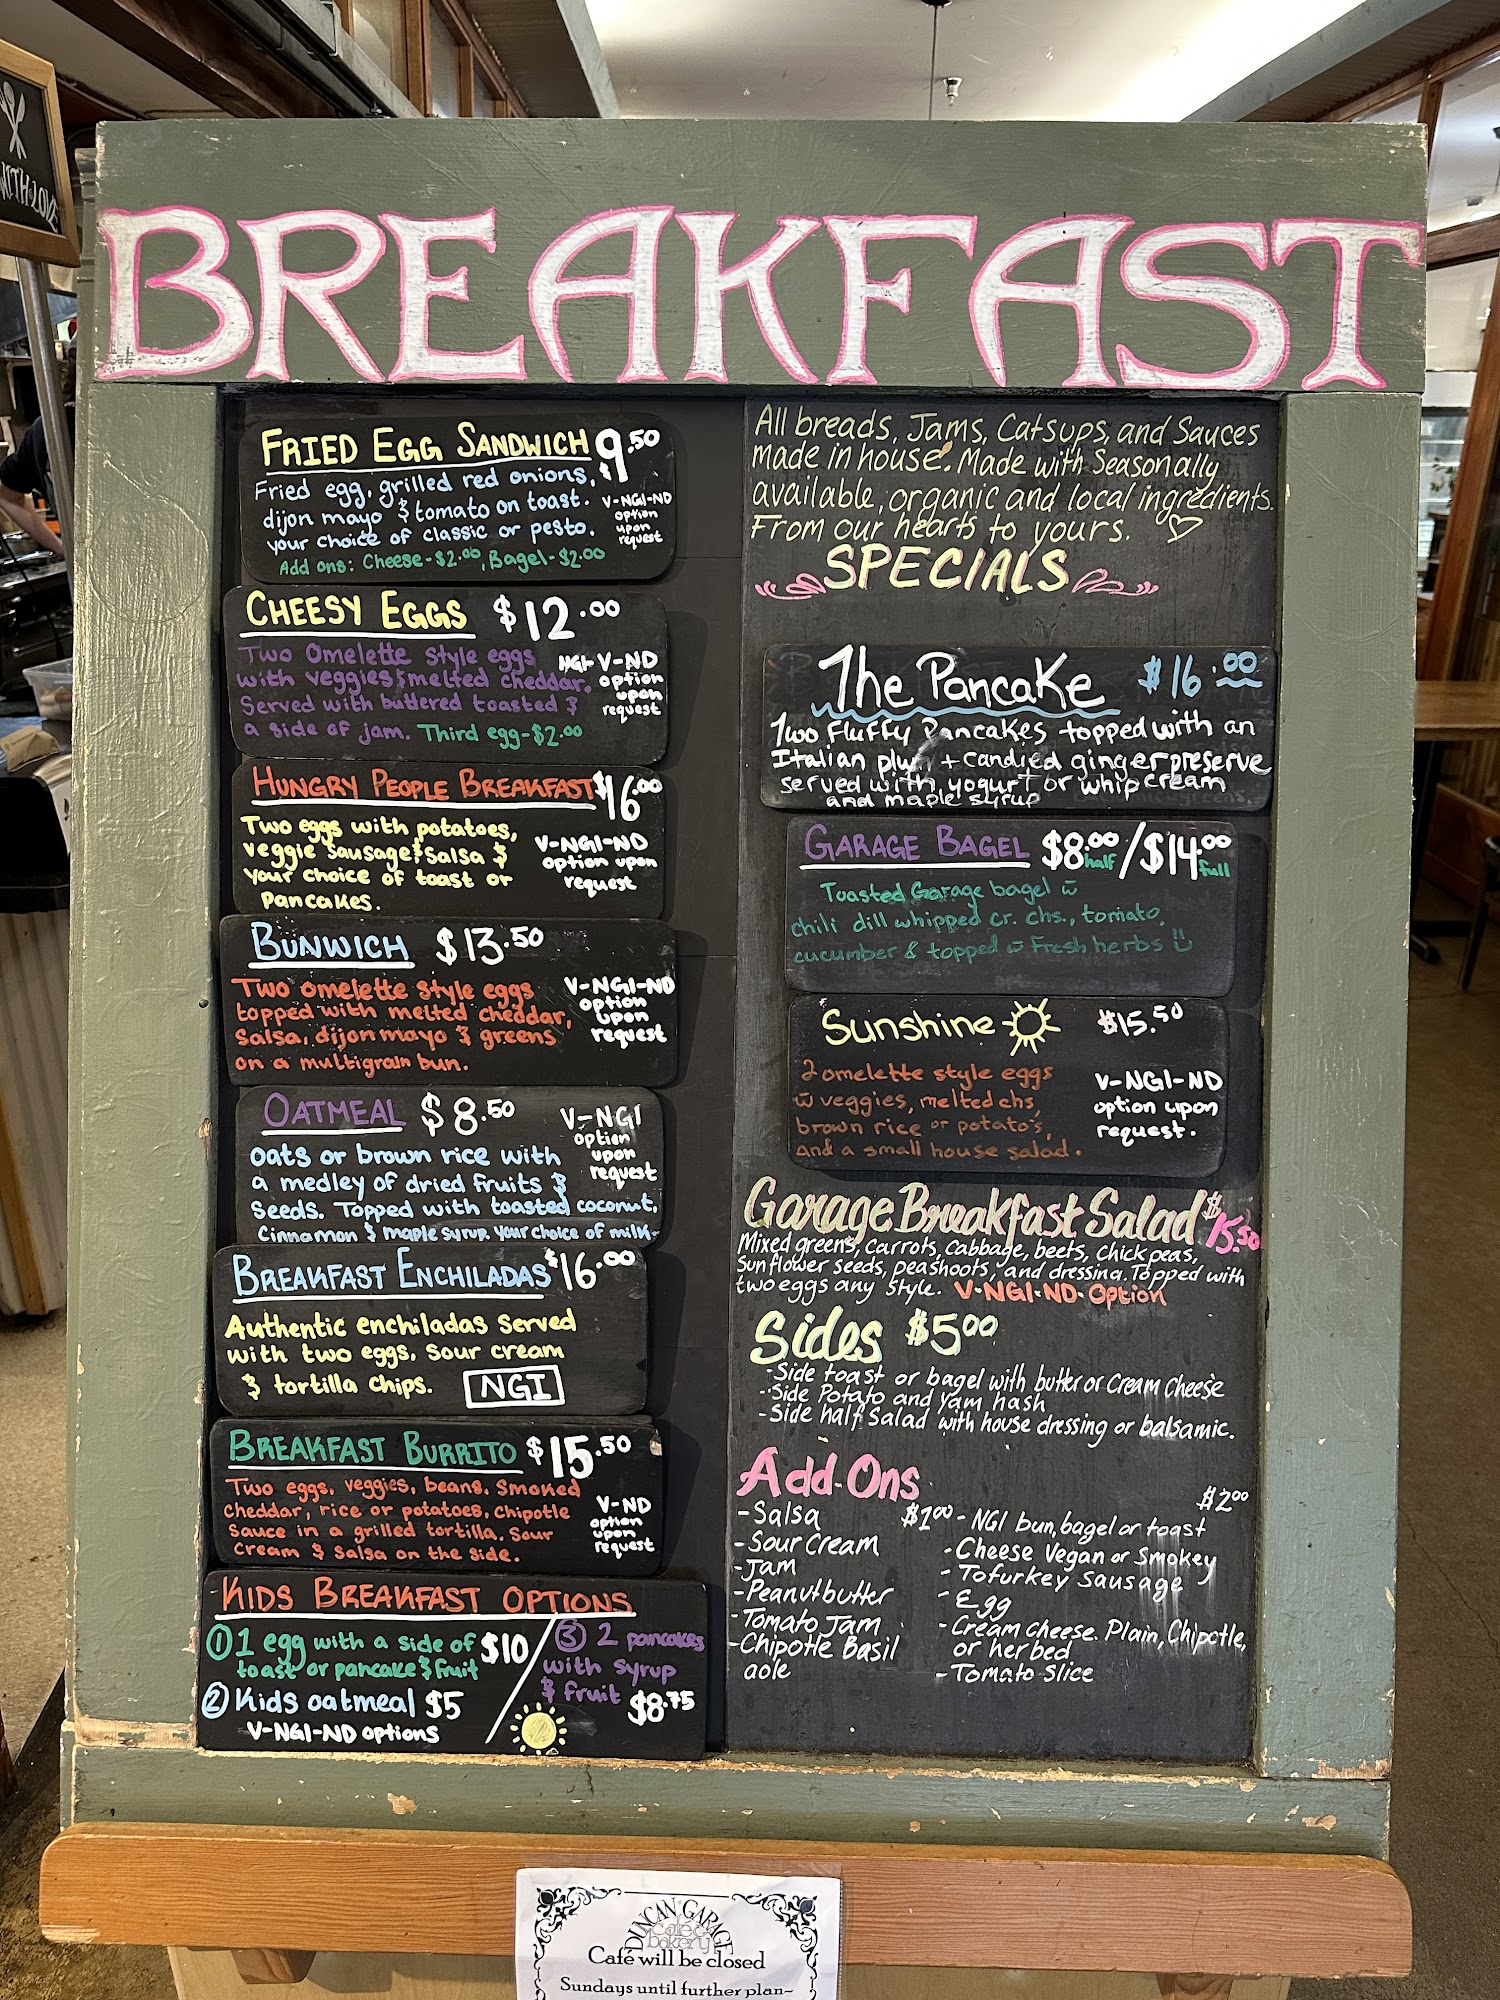 WITH LOVE
BREAKFAST
FRIED EGG SANDWICH $9.50
Fried egg, grilled red onions,
dijon mayo & tomato on toast.
your choice of classic or pesto.
V-NGI-ND
option
upon
request
Add ons: Cheese-$2.00, Bagel-$2.00
CHEESY EGGS $12.00
Two Omelette style eggs
with veggies & melted cheddar.
Served with buttered toasted &
a side of jam. Third egg-$2.00
NGI- V-ND
option
upon
request
HUNGRY PEOPLE BREAKFAST $16.00
Two eggs with potatoes,
veggie sausage & salsa &
your choice of toast or
pancakes.
V-NGI-ND
option upon
request
BUNWICH $13.50
Two omelette style eggs
topped with melted cheddar,
salsa, dijon mayo & greens
on a multigrain bun.
V-NGI-ND
option
upon
request
OATMEAL $8.50
oats or brown rice with
a medley of dried fruits &
seeds. Topped with toasted coconut,
Cinnamon & maple syrup. your choice of milk-
V-NGI
option
upon
request
BREAKFAST ENCHILADAS $16.00
Authentic enchiladas served
with two eggs, sour cream
& tortilla chips. NGI
BREAKFAST BURRITO $15.50
Two eggs, veggies, beans, smoked
cheddar, rice or potatoes, chipotle
sauce in a grilled tortilla. Sour
cream & salsa on the side.
V-ND
option
upon
request
KIDS BREAKFAST OPTIONS
① 1 egg with a side of $10
toast or pancake & fruit
② Kids oatmeal $5
V-NGI-ND options
③ 2 pancakes
with syrup
& fruit $8.75
All breads, Jams, Catsups, and Sauces
made in house. Made with Seasonally
available, organic and local ingredients.
From our hearts to yours. ♡
SPECIALS
The Pancake $16.00
Two Fluffy Pancakes topped with an
Italian plum + candied ginger preserve
served with yogurt or whip cream
and maple syrup
GARAGE BAGEL $8.00 half / $14.00 full
Toasted Garage bagel w̄
chili dill whipped cr. chs., tomato,
cucumber & topped w̄ Fresh herbs
Sunshine $15.50
2 omelette style eggs
w̄ veggies, melted chs,
brown rice or potato's,
and a small house salad.
V-NGI-ND
option upon
request.
Garage Breakfast Salad $15.50
Mixed greens, carrots, cabbage, beets, chick peas,
Sunflower seeds, peashoots, and dressing. Topped with
two eggs any style. V·NGI·ND·Option
Sides $5.00
-Side toast or bagel with butter or Cream Cheese
-Side Potato and Yam hash
-Side half Salad with house dressing or balsamic.
Add-Ons
$1.00
-Salsa
-Sour Cream
-Jam
-Peanutbutter
-Tomato Jam
-Chipotle Basil
aole
$2.00
-NGI bun, bagel or toast
-Cheese Vegan or Smokey
-Tofurkey Sausage
-Egg
-Cream cheese. Plain, Chipotle,
or herbed
-Tomato Slice
DUNCAN GARAGE
Café &
bakery
Café will be closed
Sundays until further plan-